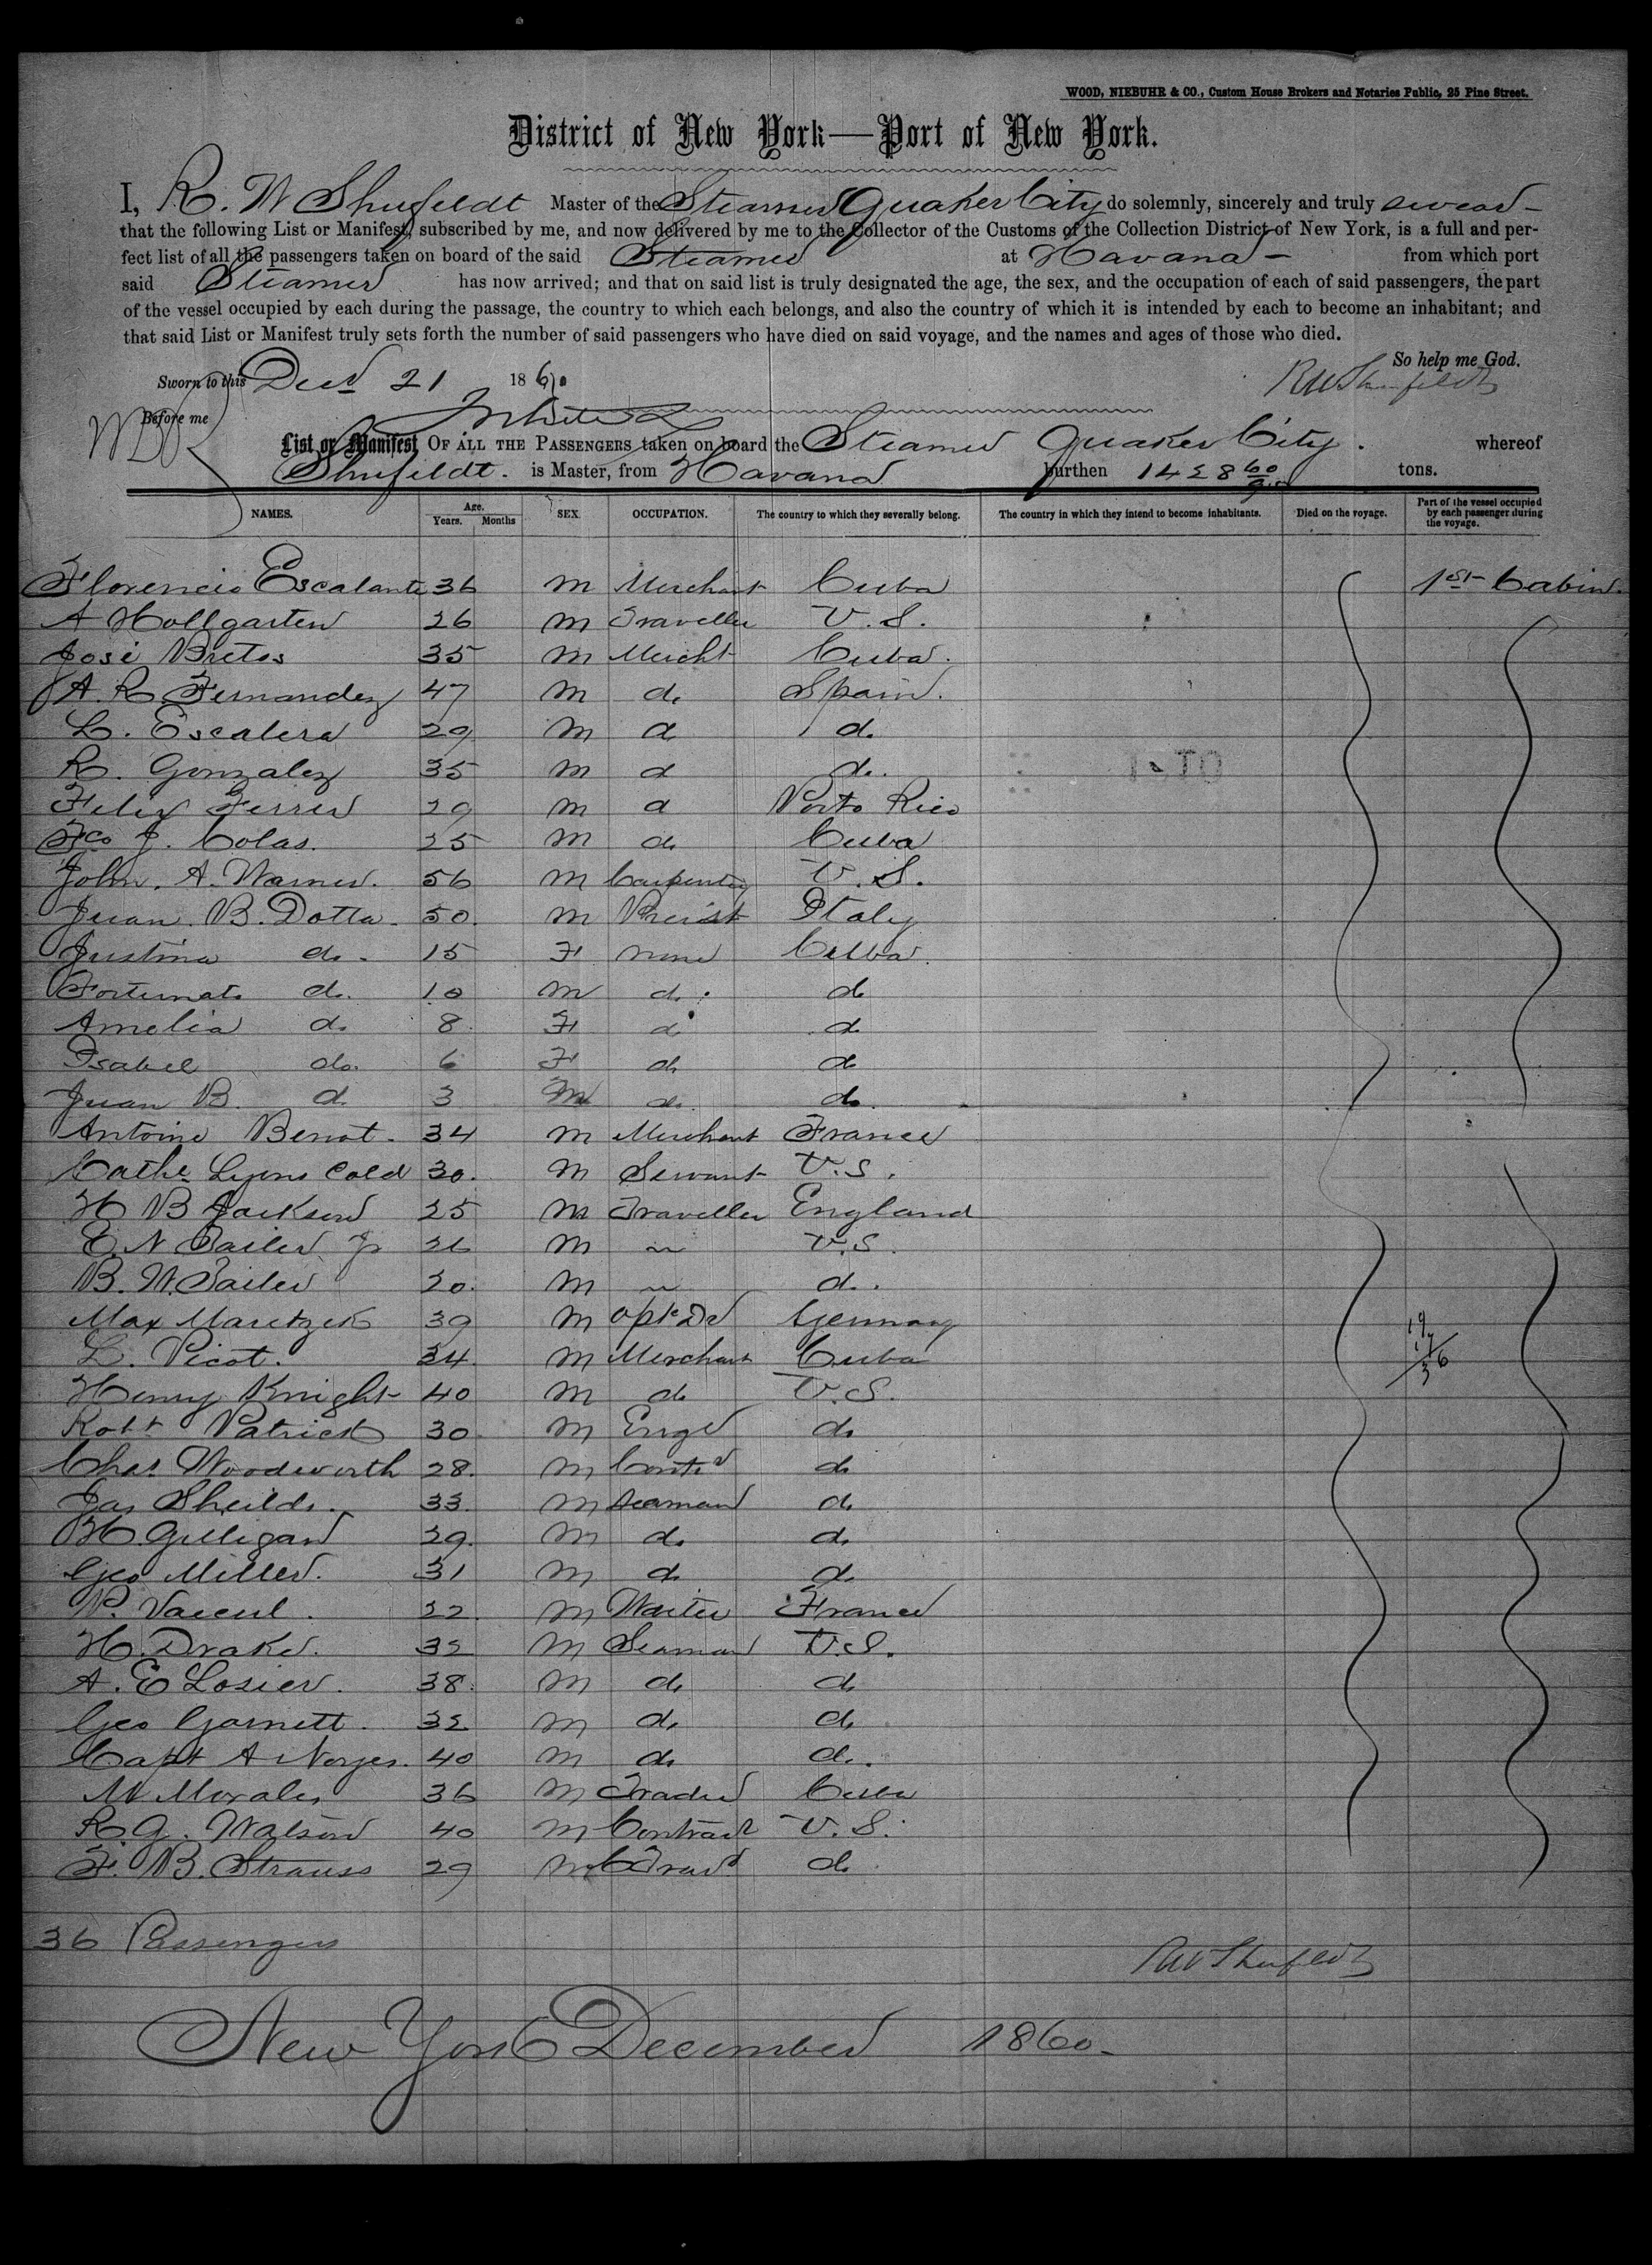 WOOD, NIEBUHR & CO., Custom House Brokers and Notaries Public, 25 Pine Street.
District of New York—Port of New York.
I, R. W Shufeldt Master of the Steamer Quaker City do solemnly, sincerely and truly swear
that the following List or Manifest, subscribed by me, and now delivered by me to the Collector of the Customs of the Collection District of New York, is a full and per-
fect list of all the passengers taken on board of the said Steamer at Havana from which port
said Steamer has now arrived; and that on said list is truly designated the age, the sex, and the occupation of each of said passengers, the part
of the vessel occupied by each during the passage, the country to which each belongs, and also the country of which it is intended by each to become an inhabitant; and
that said List or Manifest truly sets forth the number of said passengers who have died on said voyage, and the names and ages of those who died.
So help me God.
Sworn to this Decr 21 1860
RWShufeldt
Before me
List or Manifest OF ALL THE PASSENGERS taken on board the Steamer Quaker City. whereof
Shufeldt. is Master, from Havana burthen 1428 60 tons.
NAMES. Age. Years. Months SEX. OCCUPATION. The country to which they severally belong. The country in which they intend to become inhabitants. Died on the voyage. Part of the vessel occupied by each passenger during the voyage.
Florencio Escalante 36 M Merchant Cuba 1st Cabin.
A Hollgarten 26 M Traveller U.S.
José Bretos 35 M Mercht Cuba.
A. R. Fernandez 47 M do Spain.
L. Escalera 29 M do do.
R. Gonzalez 35 M d do.
Felix Ferrer 29 M d Porto Rico
Fco J. Colas. 25 M do Cuba
John. A. Warner. 56 M Carpenter U.S.
Juan B. Dotta 50. M Preist Italy
Justina do. 15 F none Cuba.
Fortunato do. 10 M do. do
Amelia do 8. F d do
Isabel do. 6 F do do
Juan B. d. 3 M do. do.
Antoine Benot. 34 M Merchant France
Cathe Lyons Cold 30. M Servant U.S.
H B Jackson 25 M Traveller England
E. N Sailer Jr 26 M " U.S.
B. W. Sailer 20. M " do.
Max Maretzek 39 M Germany
L. Picot. 34. M Merchant Cuba
Henry Knight 40 M do U.S.
Robt Patrick 30 M Engr do
Chas. Woodworth 28. M do
Jas Sheilds. 33. M Seaman do
H. Gilligan 29. M do do
Geo Miller. 31 M do do
22. M Waiter France
H. Drake. 32 M Seaman U.S.
A. E Losier. 38. M do do
Geo Garnett. 32 M do do
Capt A Noyes. 40 M do do.
M Morales 36 M Trader Cuba
R. G. Watson 40 M Contract U.S.
F. B. Strauss 29 M do
19
17
36
36 Passengers
RWShufeldt
New York December 1860